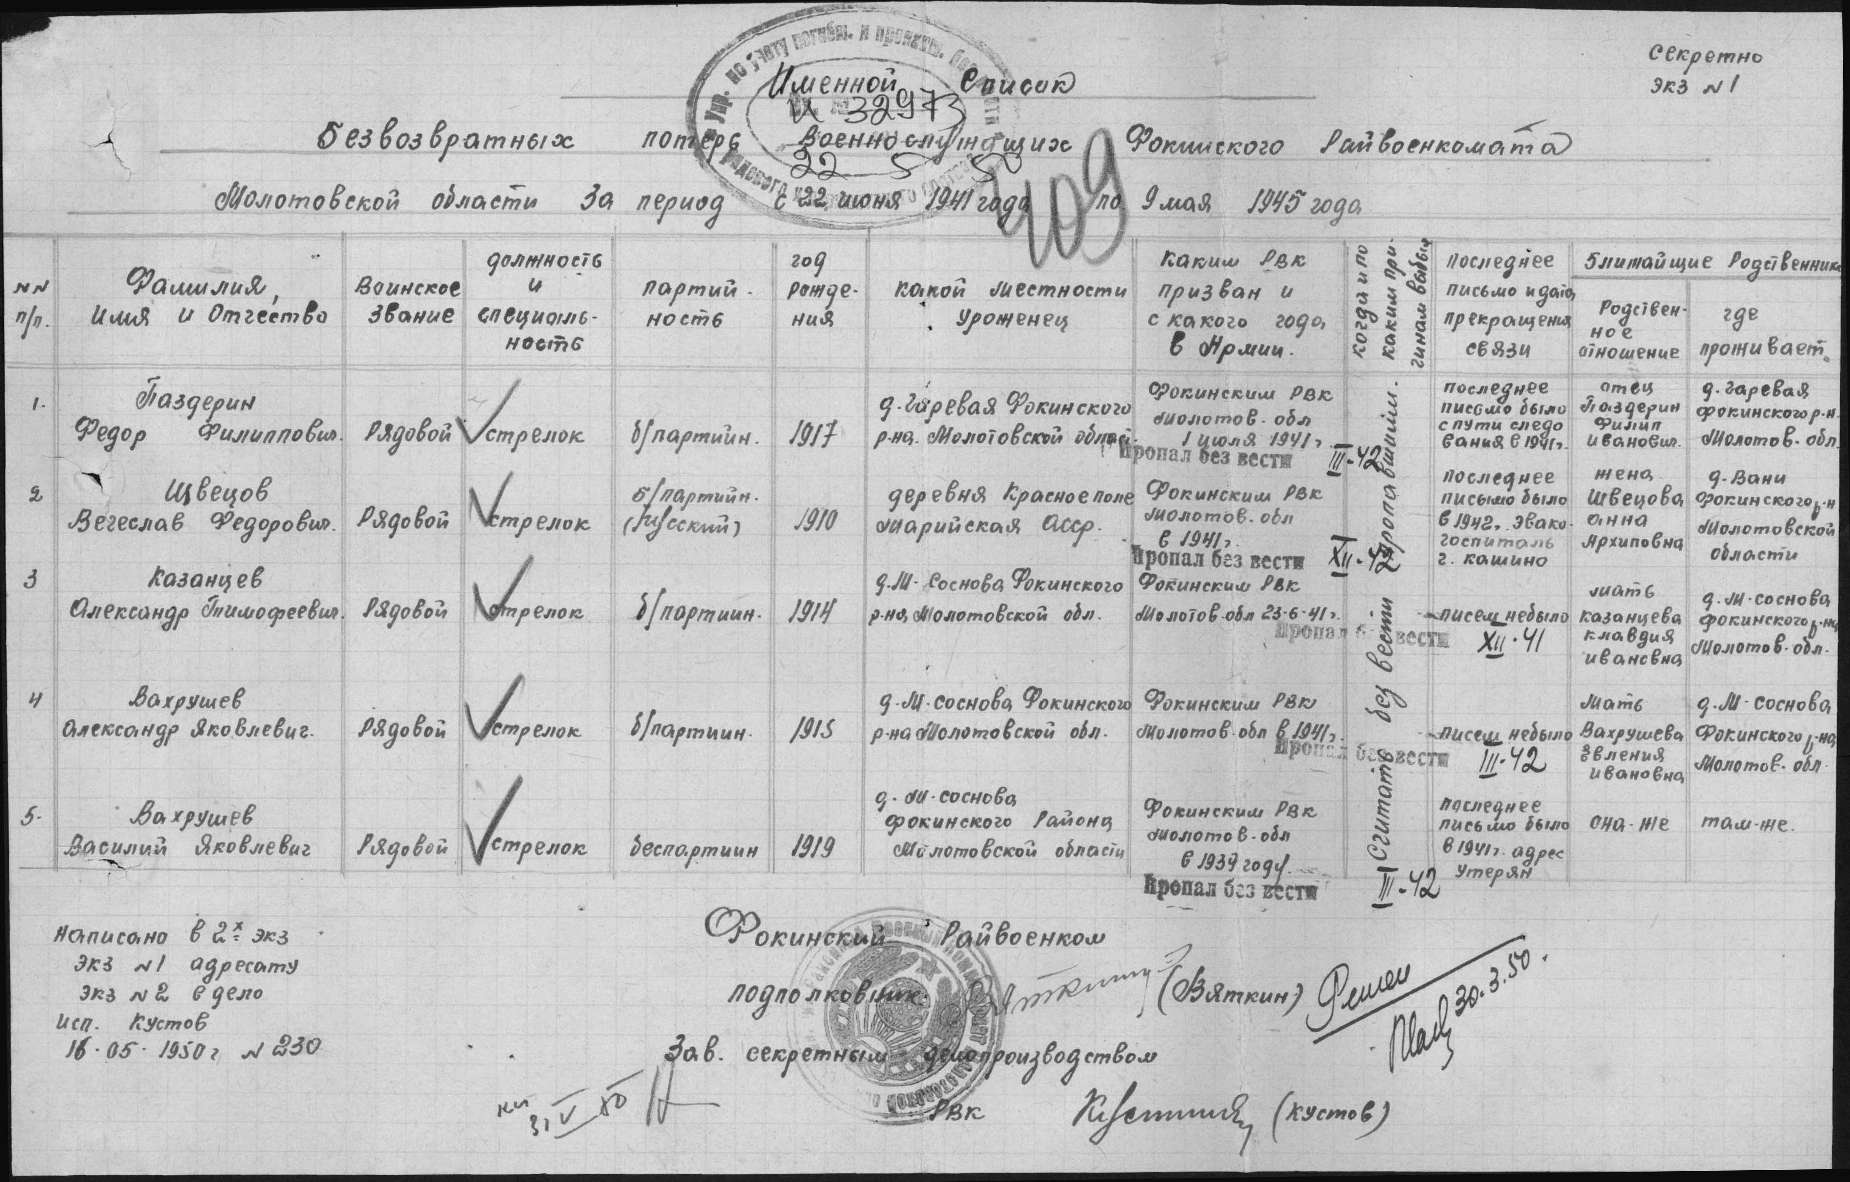 Секретно
экз №1
Именной Список
И 3297
22 5 50
Безвозвратных потерь Военнослужащих Фокинского Райвоенкомата
Молотовской области За период с 22 июня 1941 года по 9 мая 1945 года
409
№№ п/п.
Фамилия, Имя и Отчество
Воинское Звание
должность и специаль-ность
партий-ность
год рожде-ния
какой местности уроженец
каким РВК призван и с какого года в Армии.
когда и по каким при-чинам выбыл
последнее письмо и дата прекращения связи
Ближайшие Родственники
Родствен-ное отношение
где проживает.
1.
Паздерин
Федор Филиппович.
Рядовой
стрелок
б/партийн.
1917
д. Гаревая Фокинского
р-на. Молотовской област.
Фокинским РВК
Молотов. обл
1 июля 1941 г.
Пропал без вести
III-42
последнее
письмо было
с пути следо
вания в 1941г.
отец
Паздерин
Филип
Иванович.
д. Гаревая
Фокинского р-н.
Молотов. обл.
2
Швецов
Вечеслав Федорович.
Рядовой
стрелок
б/партийн.
(Русский)
1910
деревня Красное поле
Марийская АССР.
Фокинским РВК
Молотов. обл
в 1941г.
Пропал без вести
XII-42
последнее
письмо было
в 1942г. Эвако-
госпиталь
г. кашино
жена
Швецова
анна
Архиповна
д. Вани
Фокинского р-н
Молотовской
области
3
Казанцев
Александр Тимофеевич.
Рядовой
стрелок
б/партиин.
1914
д. М-Соснова Фокинского
р-на Молотовской обл.
Фокинским РВК
Молотов. обл 23-6-41г.
Пропал без вести
писем небыло
XII-41
мать
казанцева
клавдия
ивановна
д. М-соснова
фокинского р-на
Молотов. обл.
4
Вахрушев
Александр Яковлевич.
Рядовой
стрелок
б/партиин.
1915
д. М-соснова Фокинского
р-на Молотовской обл.
Фокинским РВК
Молотов. обл в 1941г.
Пропал без вести
писем небыло
III-42
Мать
Вахрушева
Евления
ивановна
д. М-соснова
Фокинского р-на
Молотов. обл.
5.
Вахрушев
Василий Яковлевич
Рядовой
стрелок
беспартиин
1919
д. М-соснова
Фокинского Района
Молотовской области
Фокинским РВК
Молотов. обл
в 1939 году.
Пропал без вести
III-42
последнее
письмо было
в 1941г. адрес
утерян
она-же
там-же.
Считать без вести пропавшими.
Написано в 2х экз
экз №1 адресату
экз №2 в дело
исп. Кустов
16-05-1950г №230
Фокинский Райвоенком
подполковник (Вяткин)
Зав. секретным делопроизводством
РВК (Кустов)
30.3.50.
31 V 50